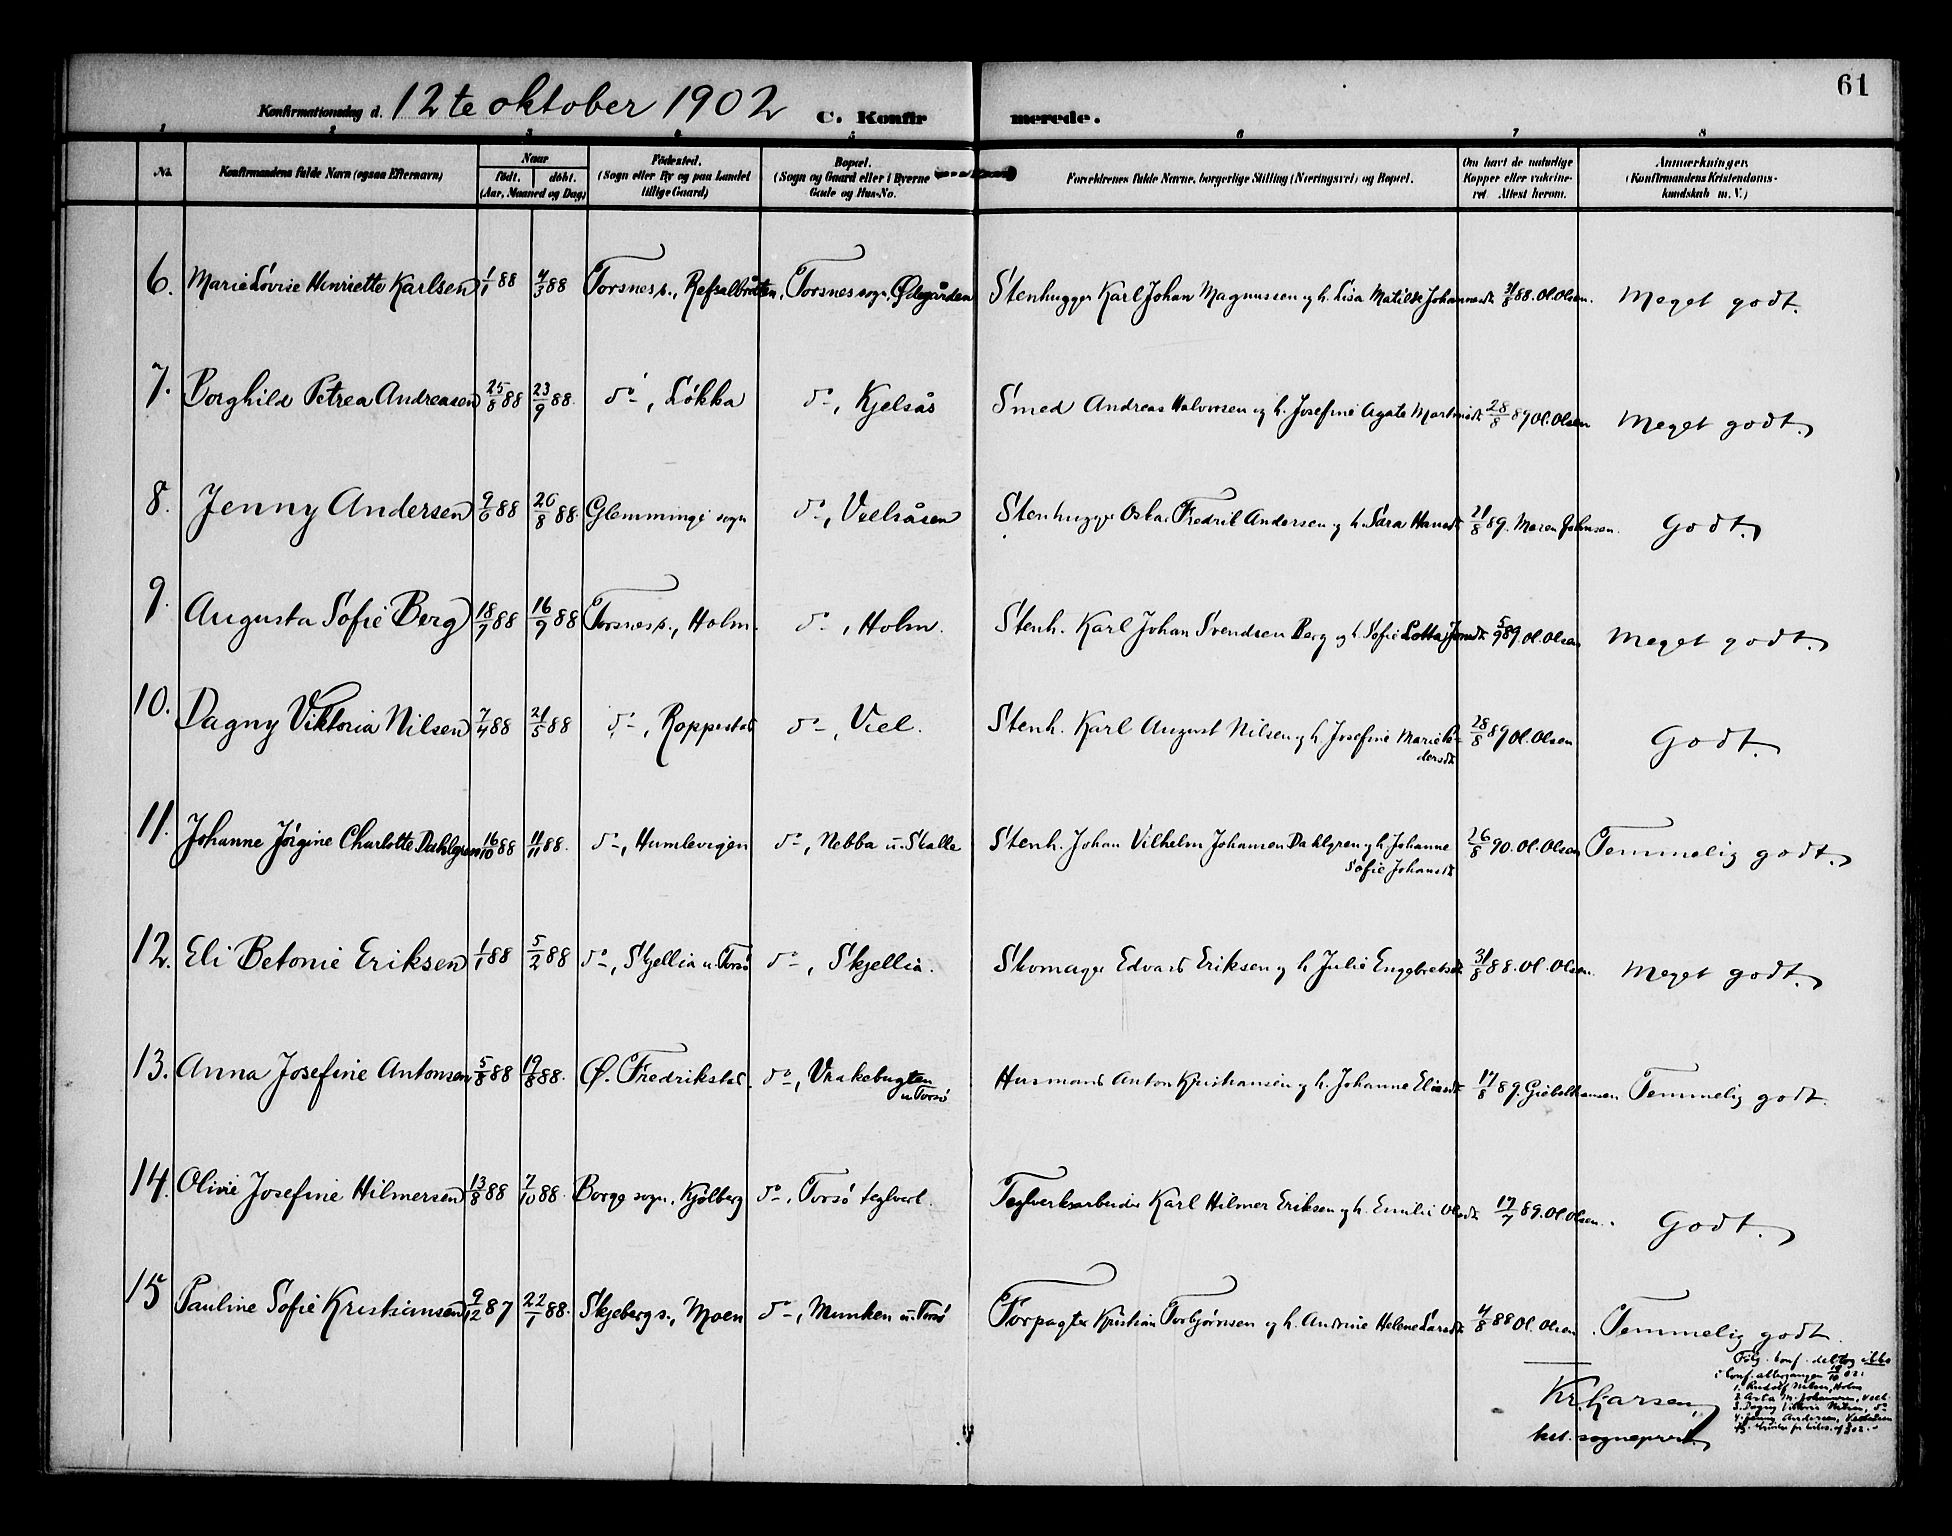 61
Konfirmationsdag d. 12te oktober 1902 C. Konfirmerede.
1 2 3 4 5 6 7 8
No. Konfirmandens fulde Navn (ogsaa Efternavn) Naar født. døbt. (Aar, Maaned og Dag) Fødested. (Sogn eller By og paa Landet tillige Gaard) Bopæl. (Sogn og Gaard eller i Byerne Gade og Hus-No. Forældrenes fulde Navne, borgerlige Stilling (Næringsvei) og Bopæl. Om havt de naturlige Kopper eller vakcineret Attest herom. Anmærkninger. (Konfirmandens Kristendomskundskab m. V.)
6. Marie Lovise Henriette Karlsen 1/1 88 4/3 88 Torsnes s., Refsalbråten, Torsnes sogn, Ødegården Stenhugger Karl Johan Magnussen og h. Lisa Matilde Johannesdt. 31/8 88. Ol. Olsen. Meget godt.
7. Borghild Petrea Andreasen 25/8 88 23/9 88. do, Løkka do, Kjelsås Smed Andreas Halvorsen og h. Josefine Agate Martinsdt. 28/8 89 Ol. Olsen Meget godt.
8. Jenny Andersen 9/6 88 26/8 88. Glemminge sogn do, Veelsåsen Stenhugger Oskar Fredrik Andersen og h. Sara Hansdt. 21/8 89. Maren Johnsen. Godt.
9. Augusta Sofie Berg 18/7 88 16/9 88 Torsnes s., Holm. do, Holm. Stenh. Karl Johan Svendsen Berg og h. Sofie Lotta Jonsdt. 5/9 89 Ol. Olsen Meget godt.
10. Dagny Viktoria Nilsen 7/4 88 21/5 88 do, Roppestad do, Viel. Stenh. Karl August Nilsen og h. Josefine Marie
dersdt. 28/8 89 Ol. Olsen Godt.
11. Johanne Jørgine Charlotte Dahlgren 16/10 88 11/11 88. do, Humlevigen do, Nebba u. Skalle Stenh. Johan Vilhelm Johansen Dahlgren og h. Johanne
Sofie Johansdt. 26/8 90. Ol. Olsen Temmelig godt.
12. Eli Betonie Eriksen 1/1 88 5/2 88 do, Skjellia u. Torsø do, Skjellia. Skomager Edvard Eriksen og h. Julie Engebretsdt. 31/8 88. Ol. Olsen. Meget godt.
13. Anna Josefine Antonsen 5/8 88 19/8 88. Ø. Fredrikstad. do, Vrakebugten
u. Torsø Husmand Anton Kristiansen og h. Johanne Eliasdt. 17/8 89. Giebelhausen Temmelig godt.
14. Olivie Josefine Hilmersen 13/8 88 7/10 88. Borge sogn, Kjølberg do, Torsø teglverk. Teglverksarbeider Karl Hilmer Eriksen og h. Emilie Olsdt. 17/7 89. Ol. Olsen. Godt.
15 Pauline Sofie Kristiansen 9/12 87 22/1 88. Skjeberg s., Moen do, Munken u. Torsø Forpagter Kristian Torbjørnsen og h. Andrine Helene Larsdt. 4/8 88 Ol. Olsen Temmelig godt.
Følg. konf. deltog ikke
i konf. altergangen 19/10 02:
1. Rudolf Nilsen, Holm
2. Asta M. Johansen, Veel.
3. Dagny Viktoria Nilsen, do
4. Jenny Andersen, Veelsåsen
Kr. Larsen,
kst. sogneprest.